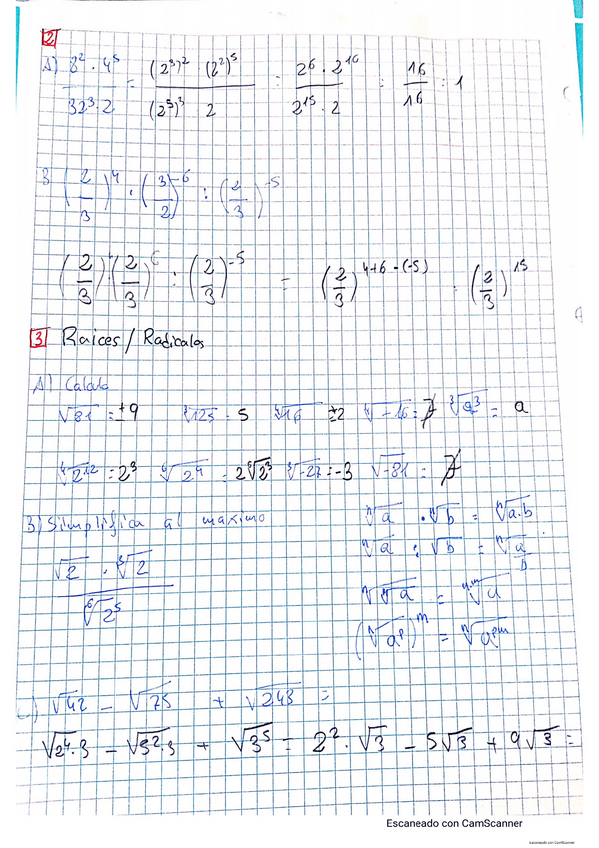 2
A) 8² · 4⁵ / 32³ · 2 = (2³)² (2²)⁵ / (2⁵)³ 2 = 2⁶ · 2¹⁰ / 2¹⁵ · 2 = 16/16 = 1
B (2/3)⁴ · (3/2)⁻⁶ : (2/3)⁻⁵
(2/3)⁴ (2/3)⁶ : (2/3)⁻⁵ = (2/3)⁴⁺⁶⁻⁽⁻⁵⁾ = (2/3)¹⁵
3 Raices / Radicales
A) Calcula
√81 = ±9 ∛125 = 5 ∜16 ±2 ∜-16 = ∄ ∛a³ = a
∜2¹² = 2³ ∛-27 = -3 √-81 = ∄
B) Simplifica al maximo
√2 · ∛2 / ⁶√2⁵
ⁿ√a · ⁿ√b = ⁿ√a.b
ⁿ√a : √b = ⁿ√a/b
ⁿ√ᵐ√a = ⁿ·ᵐ√a
(ⁿ√aᵖ)ᵐ = ⁿ√aᵖᵐ
C) √42 - √75 + √243 =
√2⁴·3 - √5²·3 + √3⁵ = 2² · √3 - 5√3 + 9√3 =
Escaneado con CamScanner